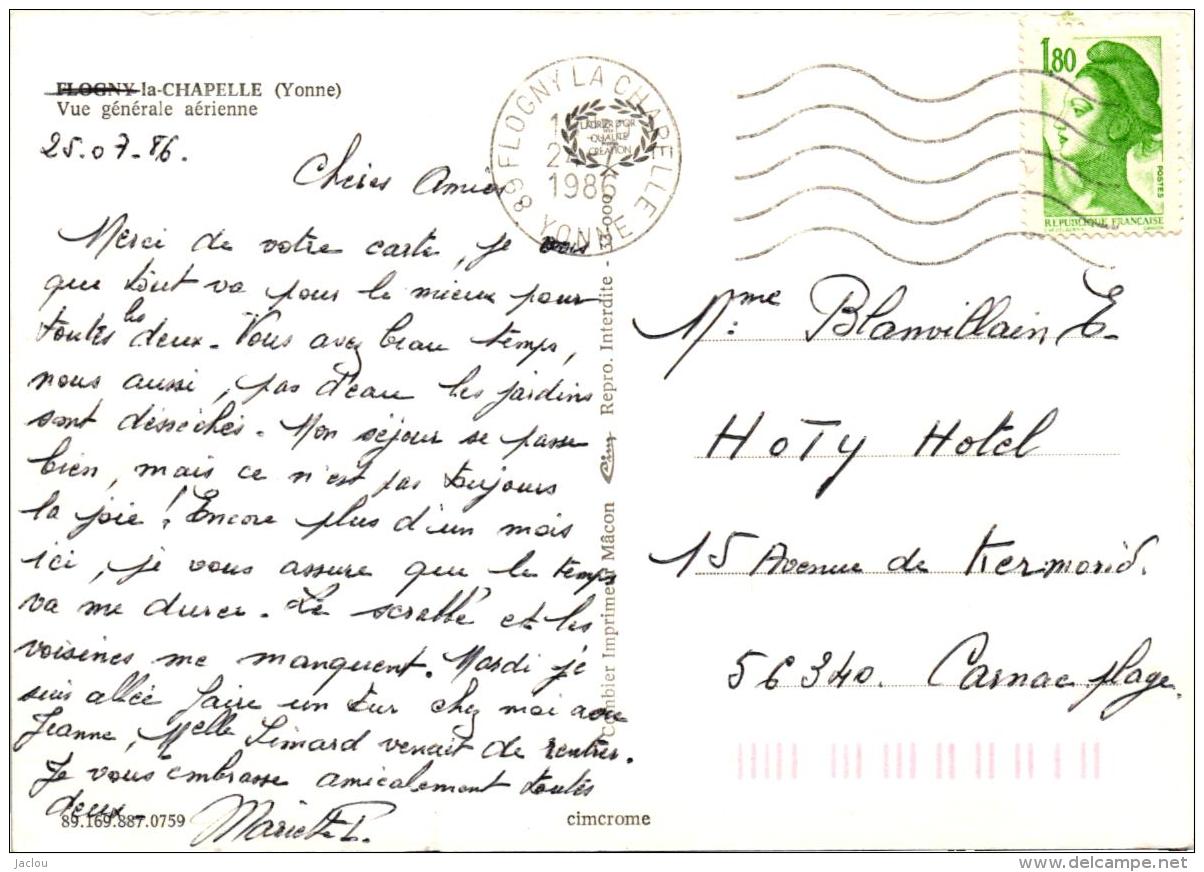 FLOGNY-la-CHAPELLE (Yonne)
Vue générale aérienne
25.07.86.
Chères Amies
Merci de votre carte, je vous
que tout va pour le mieux pour
toutes les deux. Vous avez beau temps,
nous aussi, pas d'eau les jardins
sont désséchés. Mon séjour se passe
bien, mais ce n'est pas toujours
la joie! Encore plus d'un mois
ici, je vous assure que le temps
va me durer. Le scrabble et les
voisines me manquent. Mardi je
suis allée faire un tur chez moi avec
Jeanne, Melle Simard venait de rentrer.
Je vous embrasse amicalement toutes
deux.
Mariette P.
89.169.887.0759
cimcrome
Combier Imprimeur Mâcon Cim Repro. Interdite - 33-000
89 FLOGNY LA CHAPELLE
1986
YONNE
LAURIER D'OR
QUALITE
CREATION
1,80
POSTES
REPUBLIQUE FRANÇAISE
Mme Blanvillain E.
HOTY Hotel
15 Avenue de Kermorid.
56340. Carnac plage.
Jaclou
http://www.delcampe.net